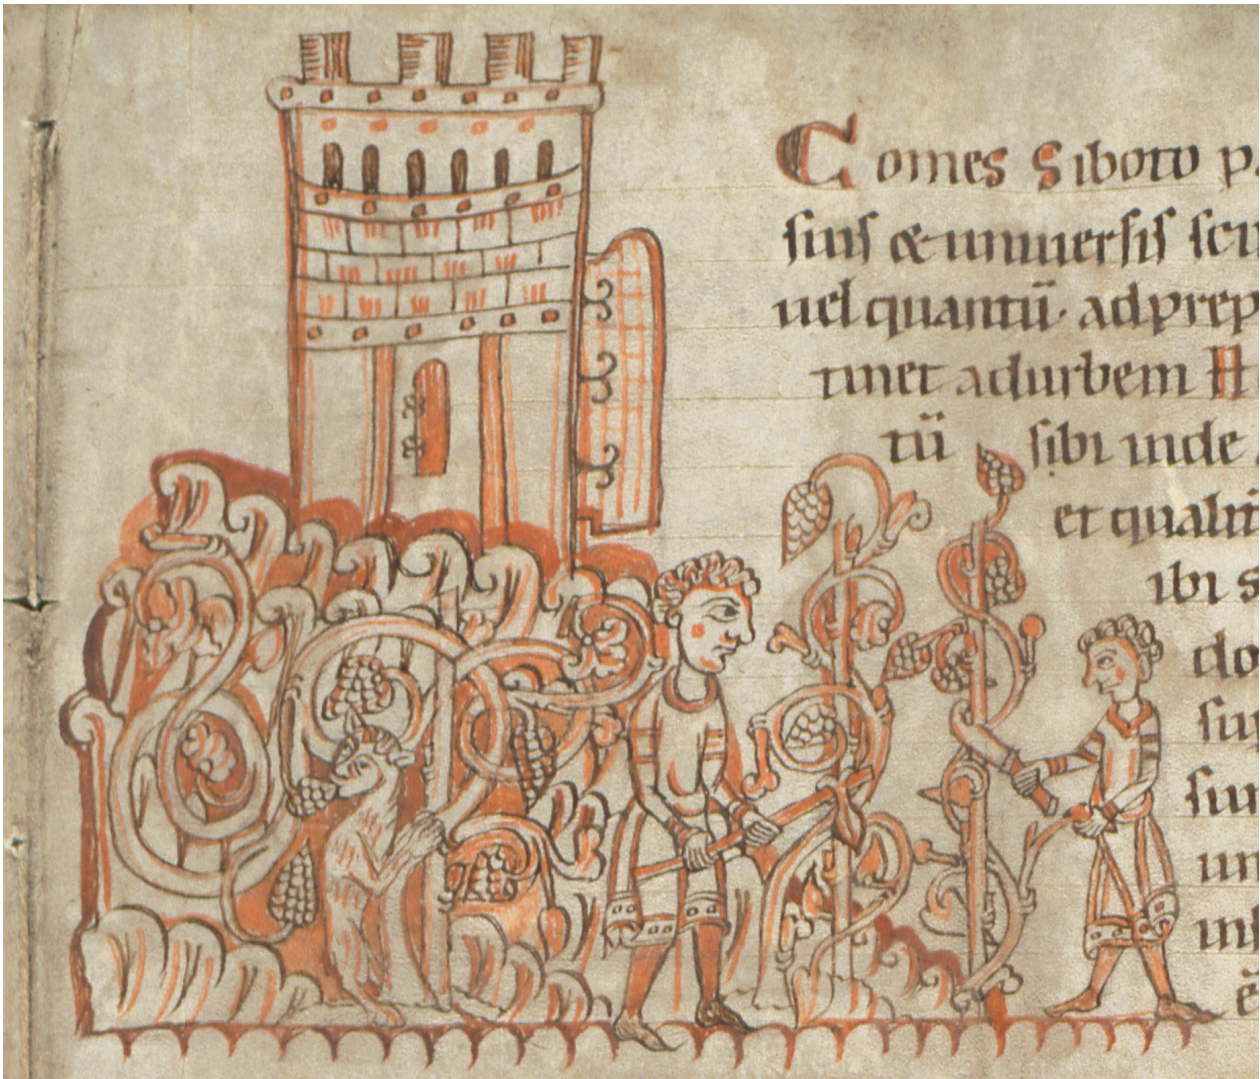 Comes Siboto p
siuſ & uniuerſiſ ſcu
uel quantū· ad prep
tinet ad urbem H
tū ſibi inde
et qualit
ibi s
do
ſu
ſuu
un
in
ē